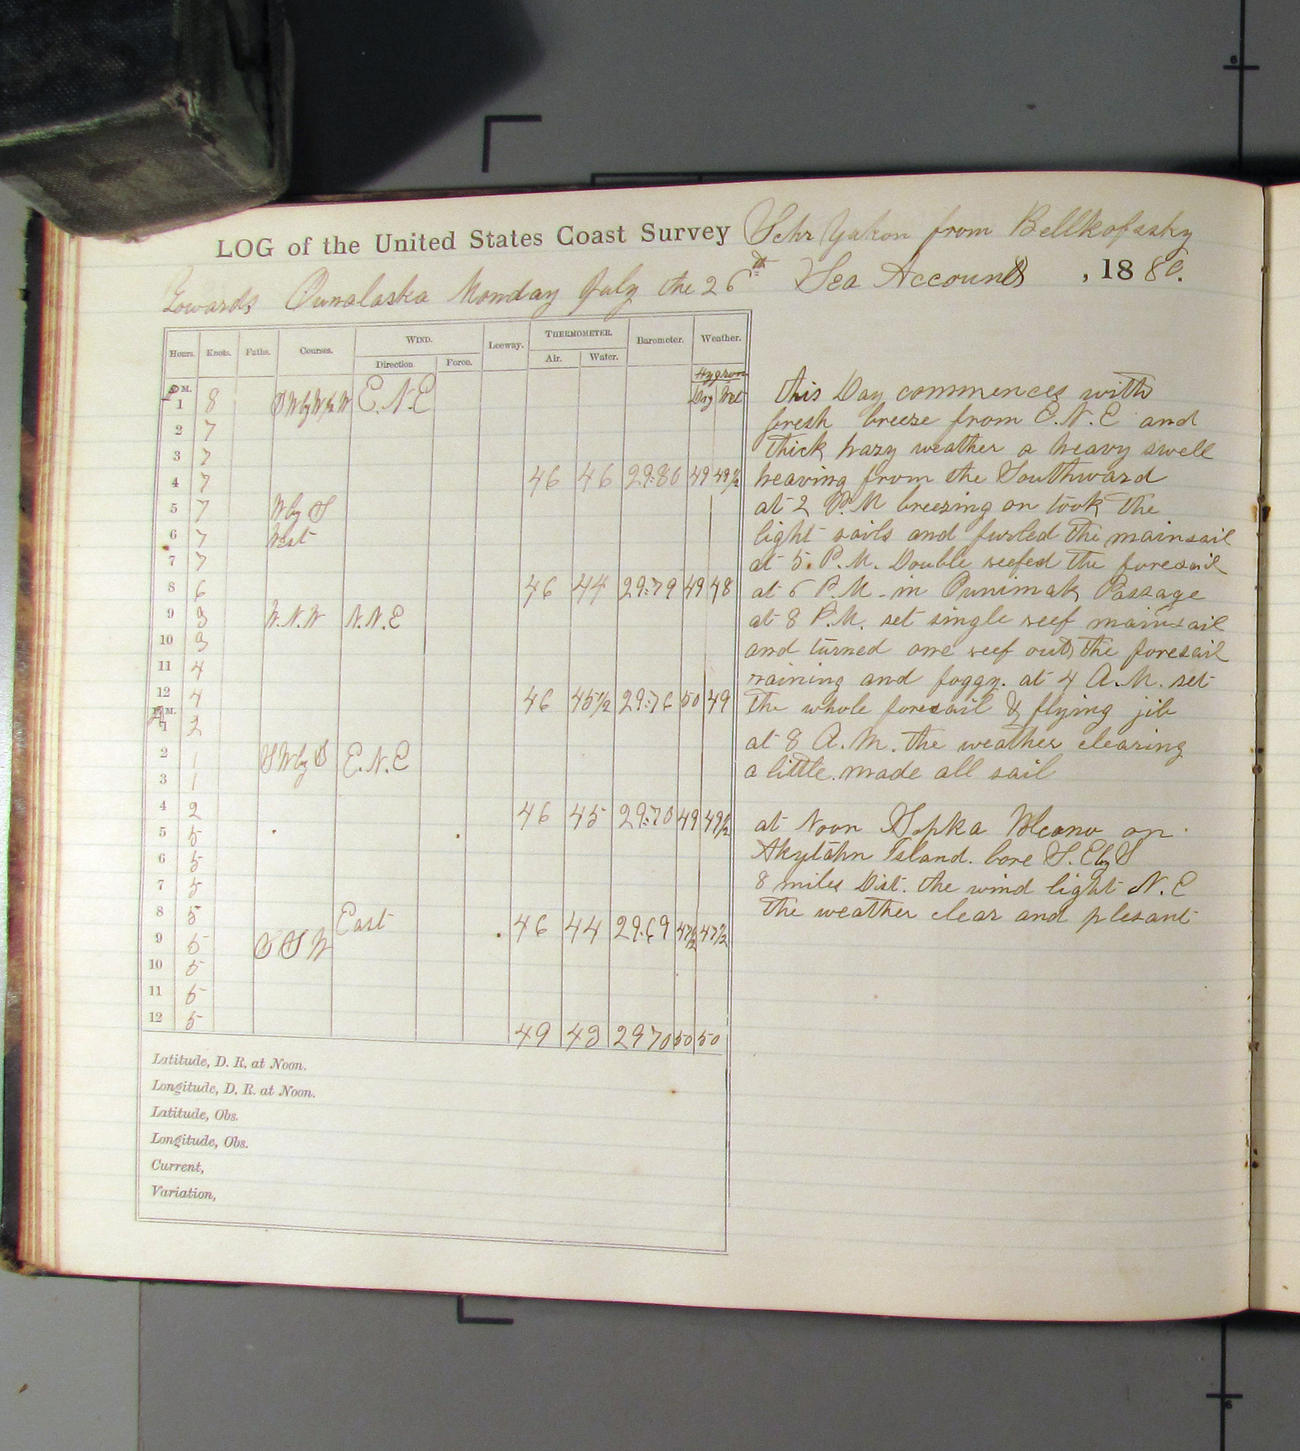 LOG of the United States Coast Survey Schr Yukon from Bellkofssky
Towards Ounalaska Monday July the 26th Sea Accounts , 1880.
Hours. Knots. Faths. Courses. WIND. Leeway. THERMOMETER. Barometer. Weather.
Direction. Force. Air. Water. Hygrom
P.M. Dry Wet
1 8 S W by W ½ W E.N.E
2 7
3 7
4 7 46 46 29.80 49 49½
5 7 W by S
6 7 West
7 7
8 6 46 44 29.79 49 48
9 3 W.N.W N.N.E
10 3
11 4
12 4 46 45½ 29.76 50 49
A.M.
1 2
2 1 S W by S E.N.E
3 1
4 2 46 45 29.70 49 49½
5 5
6 5
7 5
8 5 East 46 44 29.69 47½ 47½
9 5 S S W
10 5
11 5
12 5 49 43 29 70 50 50
Latitude, D. R. at Noon.
Longitude, D. R. at Noon.
Latitude, Obs.
Longitude, Obs.
Current,
Variation,
this Day commences with
fresh breeze from E.N.E and
thick hazy weather a heavy swell
heaving from the Southward
at 2 P.M breezing on took the
light sails and furled the mainsail
at 5. P.M. Double reefed the foresail
at 6 P.M. in Ounimak Passage
at 8 P.M. set single reef mainsail
and turned one reef out the foresail
raining and foggy. at 4 A.M. set
the whole foresail & flying jib
at 8 A.M. the weather clearing
a little. made all sail
at Noon Sopka Vlcano on
Akytáhn Island. bore S. E by S
8 miles Dist. the wind light N.E
the weather clear and plesant
6
6